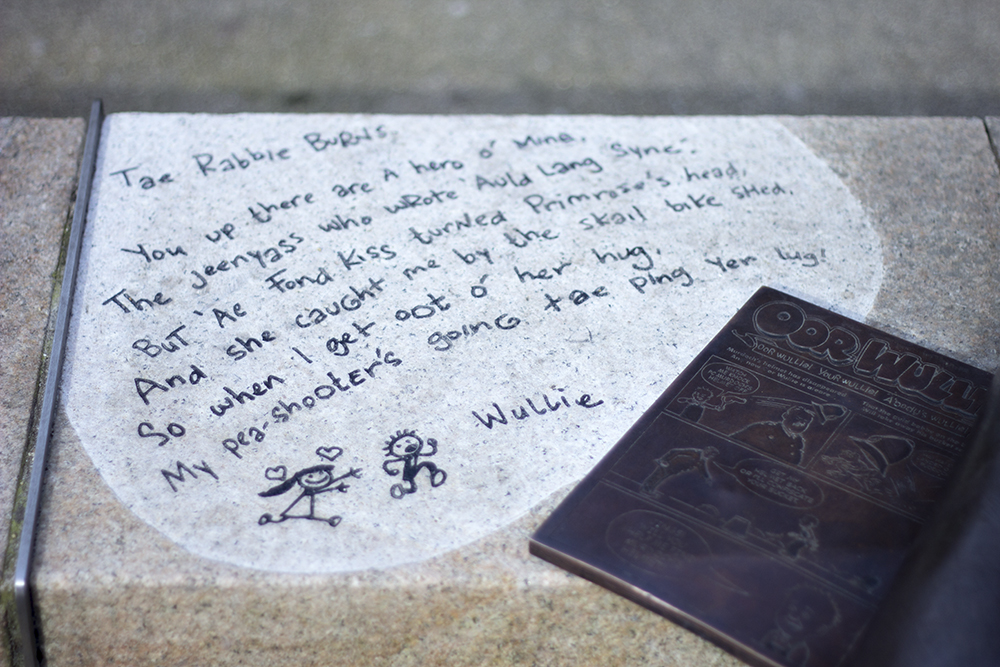 Tae Rabbie Burns.
You up there are A hero o' Mine,
The jeenyass who wrote Auld Lang Syne.
But 'Ae Fond Kiss turned Primrose's head,
And she caught me by the skail bike shed.
So when I get oot o' her hug,
My pea-shooter's going tae ping yer lug!
Wullie
OOR WULLIE
OOR WULLIE! YOUR WULLIE! A'BODY'S WULLIE!